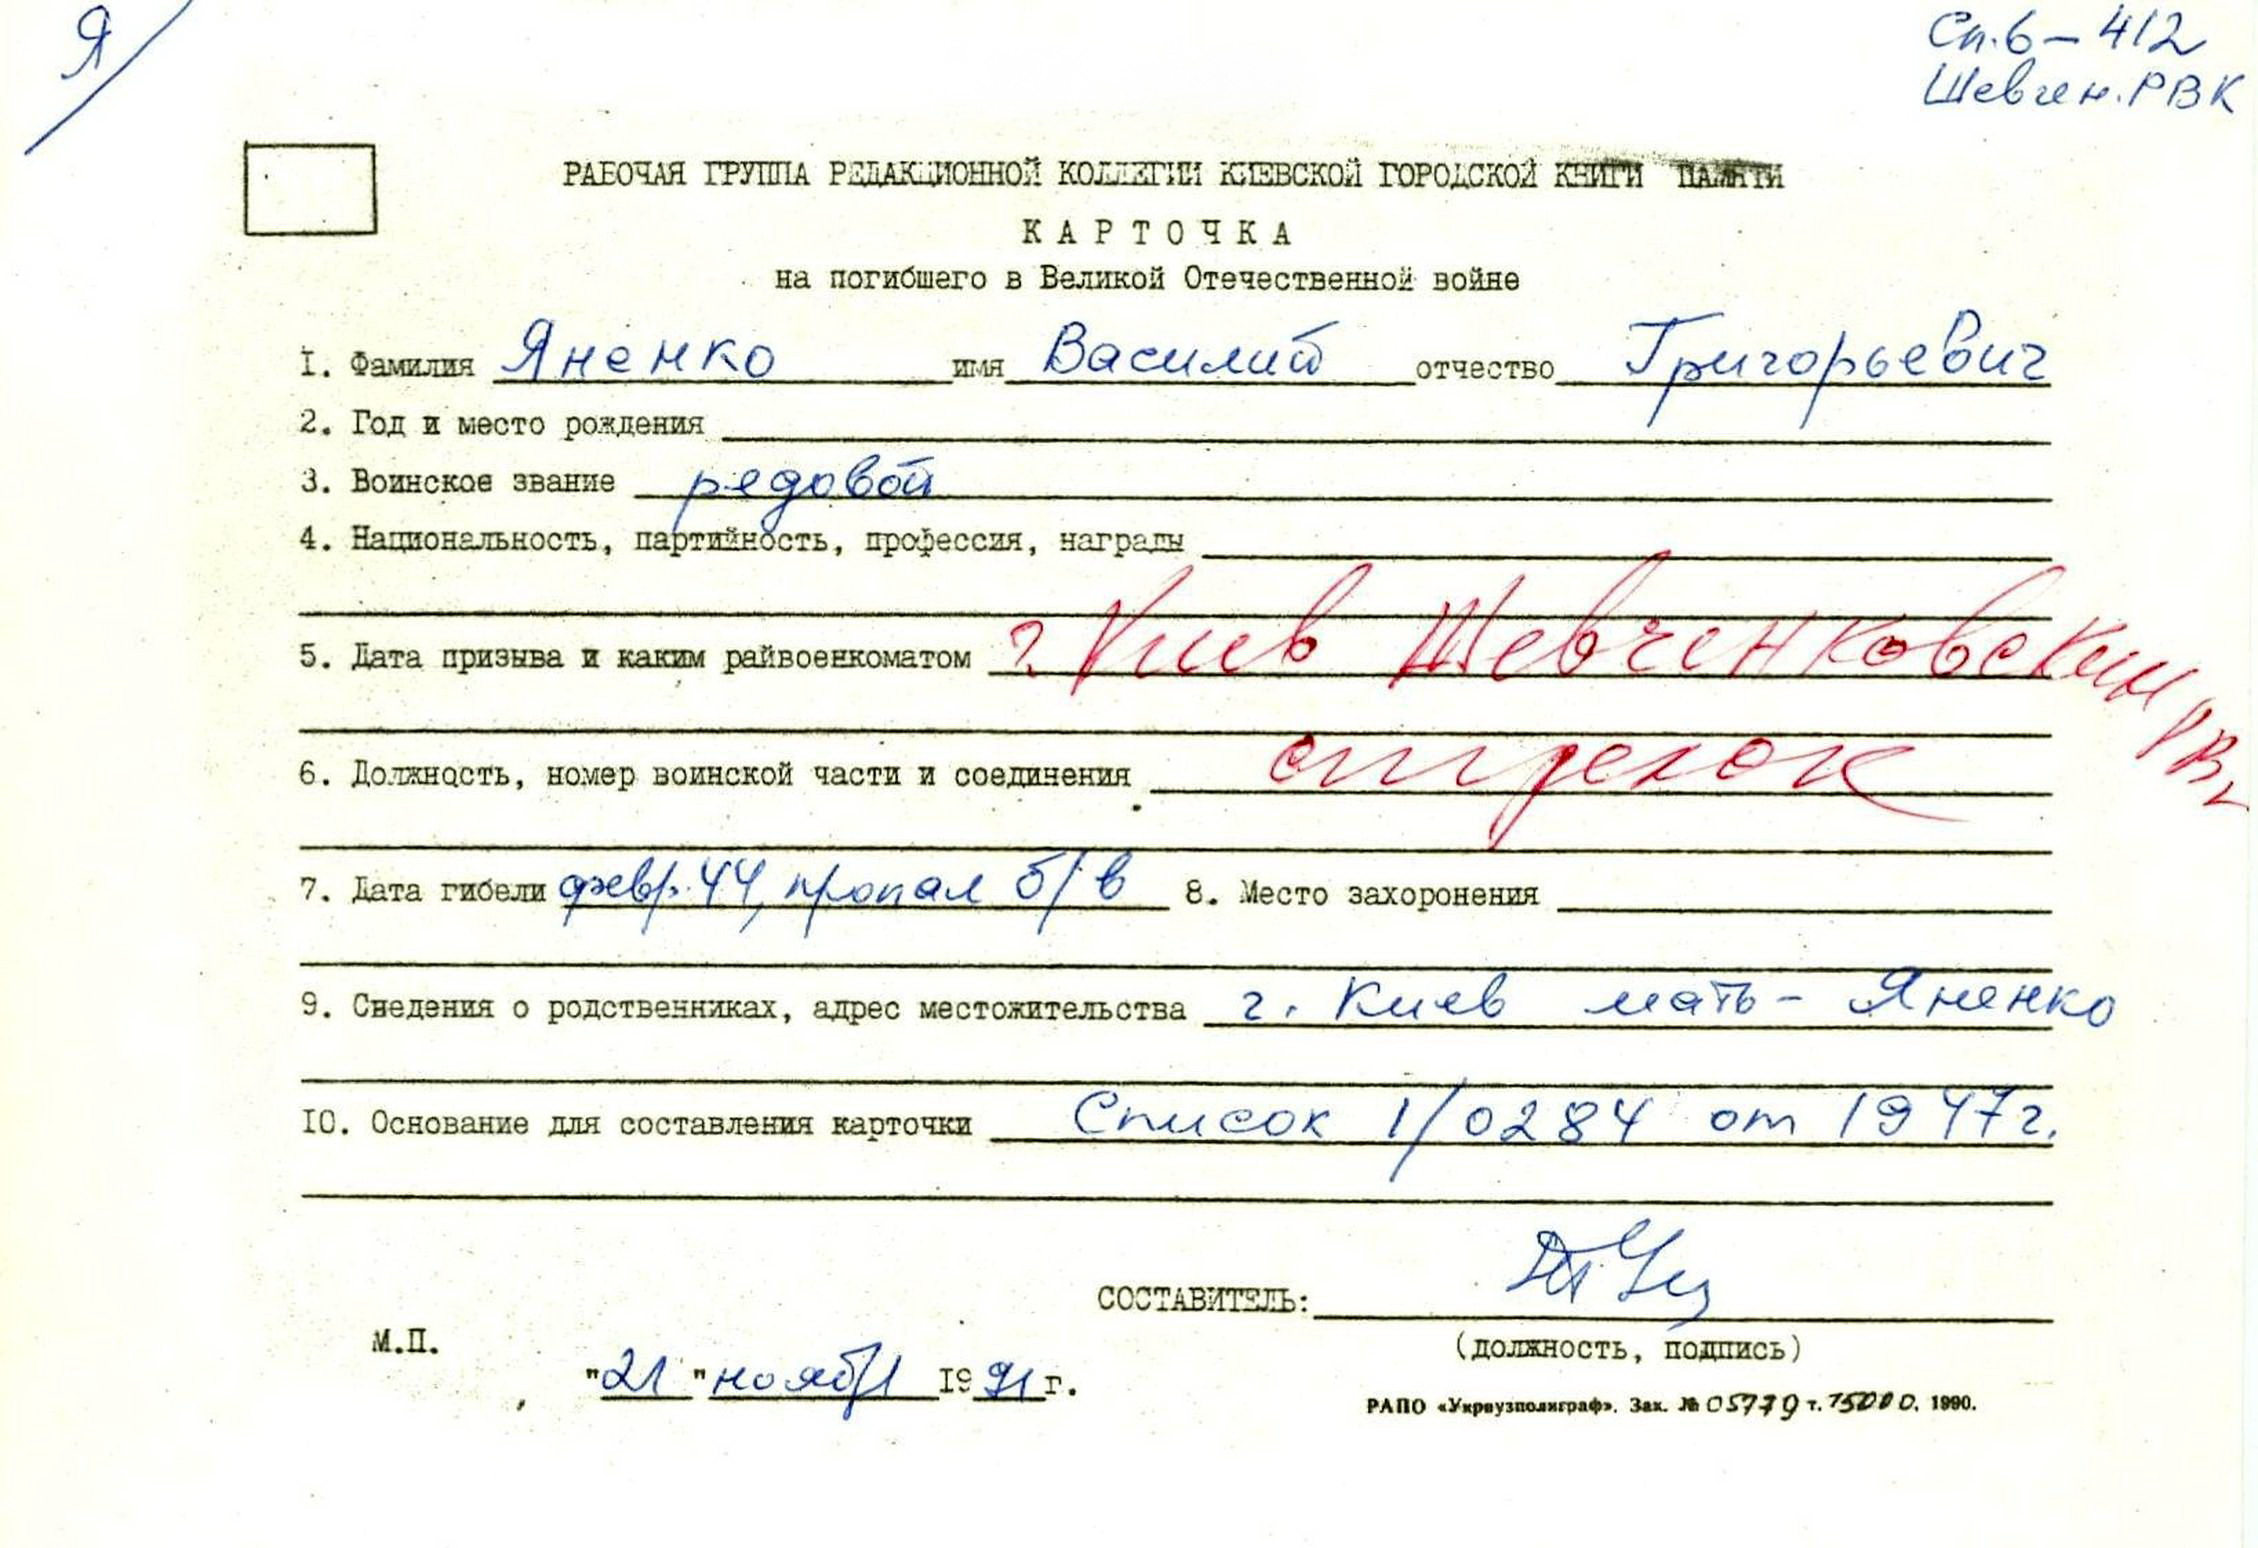 Я
Сп.6-412
Шевчен.РВК
РАБОЧАЯ ГРУППА РЕДАКЦИОННОЙ КОЛЛЕГИИ КИЕВСКОЙ ГОРОДСКОЙ КНИГИ ПАМЯТИ
КАРТОЧКА
на погибшего в Великой Отечественной войне
1. Фамилия Яненко имя Василий отчество Григорьевич
2. Год и место рождения
3. Воинское звание редовой
4. Национальность, партийность, профессия, награды
5. Дата призыва и каким райвоенкоматом г. Киев Шевченковским РВк
6. Должность, номер воинской части и соединения стрелок
7. Дата гибели февр. 44, пропал б/в 8. Место захоронения
9. Сведения о родственниках, адрес местожительства г. Киев мать - Яненко
10. Основание для составления карточки Список 1/0284 от 1947г.
СОСТАВИТЕЛЬ:
(должность, подпись)
М.П.
"21" нояб 1991г.
РАПО «Укрвузполиграф». Зак. № 05779 т. 15000. 1990.